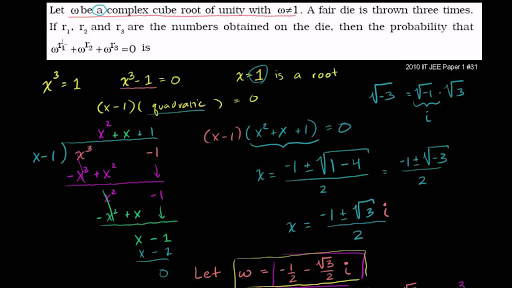 Let ω be a complex cube root of unity with ω≠1. A fair die is thrown three times.
If r₁, r₂ and r₃ are the numbers obtained on the die, then the probability that
ω^r₁ + ω^r₂ + ω^r₃ = 0 is
2010 IIT JEE Paper 1 #31
x³ = 1
x³ - 1 = 0
x = 1 is a root
√-3 = √-1 · √3
i
(x-1)( quadratic ) = 0
x² + x + 1
x-1 ) x³ -1
-x³ + x²
x² -1
-x² + x
x - 1
x - 1
0
(x-1)(x² + x + 1) = 0
x = (-1 ± √(1-4))/2 = (-1 ± √-3)/2
x = (-1 ± √3 i)/2
Let ω = -1/2 - √3/2 i